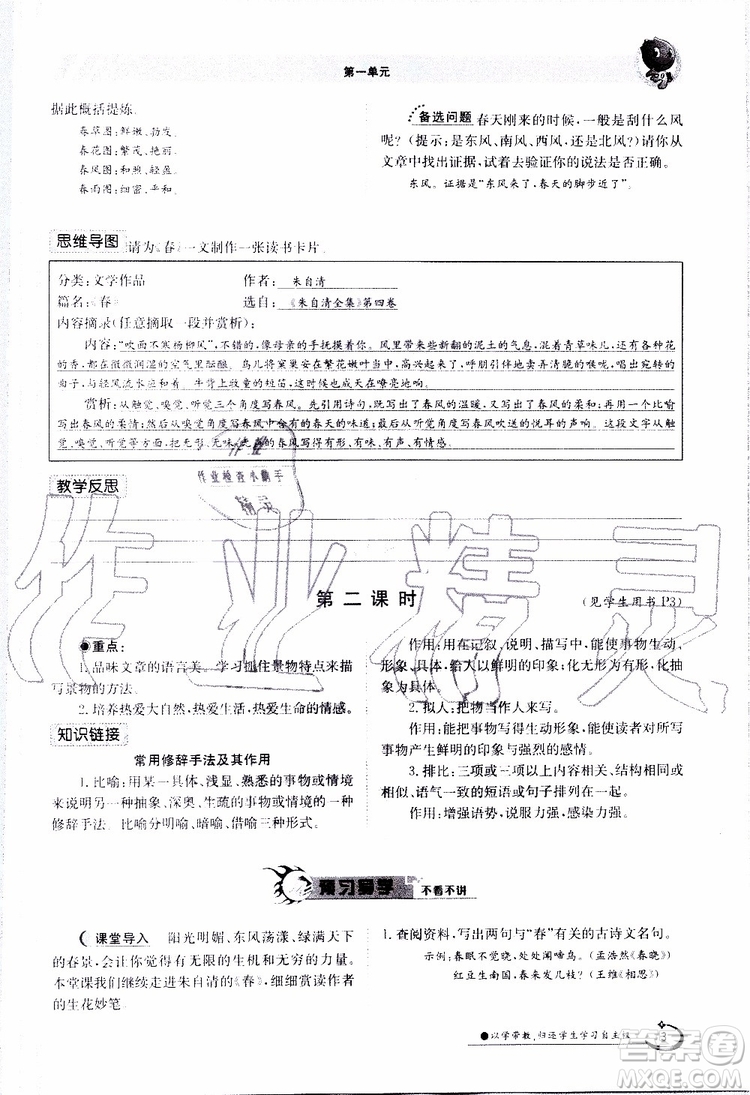 第一单元
据此概括提炼.
春草图:鲜嫩、勃发。
春花图:繁茂、艳丽。
春风图:和煦、轻盈。
春雨图:细密、平和。
备选问题 春天刚来的时候,一般是刮什么风
呢?(提示:是东风、南风、西风,还是北风?)请你从
文章中找出证据,试着去验证你的说法是否正确。
东风。证据是“东风来了,春天的脚步近了”。
思维导图 请为《春》一文制作一张读书卡片.
分类:文学作品 作者:朱自清
篇名:《春》 选自:《朱自清全集》第四卷
内容摘录(任意摘取一段并赏析):
内容:“吹面不寒杨柳风”,不错的,像母亲的手抚摸着你。风里带来些新翻的泥土的气息,混着青草味儿,还有各种花
的香,都在微微润湿的空气里酝酿。鸟儿将窠巢安在繁花嫩叶当中,高兴起来了,呼朋引伴地卖弄清脆的喉咙,唱出宛转的
曲子,与轻风流水应和着。牛背上牧童的短笛,这时候也成天在嘹亮地响。
赏析:从触觉、嗅觉、听觉三个角度写春风。先引用诗句,既写出了春风的温暖,又写出了春风的柔和;再以一个比喻
写出春风的柔和;然后从嗅觉角度写春风中含有的春天的味道;最后从听觉角度写春风吹送的悦耳的声音。总之,从触
觉、嗅觉、听觉等方面,把无形、无味、无色的春风写得有形、有味、有声、有情感。
教学反思
作业
作业检查小帮手
精灵
作业精灵
第二课时
(见学生用书 P3)
●重点:
1. 品味文章的语言美。学习抓住景物特点来描
写景物的方法.
2. 培养热爱大自然,热爱生活,热爱春天的情感。
知识链接
常用修辞手法及其作用
1. 比喻:用某一具体、浅显、熟悉的事物或情境
来说明另一种抽象、深奥、生疏的事物或情境的一种
修辞手法. 比喻分明喻、暗喻、借喻三种形式。
作用:用在记叙、说明、描写中,能使事物生动、
形象、具体,给人以鲜明的印象;化无形为有形,化抽
象为具体。
2. 拟人:把物当作人来写。
作用:能把事物写得生动形象,能使读者对所写
事物产生鲜明的印象与强烈的感情。
3. 排比:三项或三项以上内容相关、结构相同或
相似、语气一致的短语或句子排列在一起。
作用:增强语势,说服力强,感染力强。
预习导学 不看不讲
课堂导入 阳光明媚、东风荡漾、绿满天下
的春景,给人以无限的生机和无穷的力量.
本堂课我们继续走进朱自清的《春》,细细赏读作者
的生花妙笔.
1. 查阅资料,写出两句与“春”有关的古诗文名句。
示例:春眠不觉晓,处处闻啼鸟。(孟浩然《春晓》)
红豆生南国,春来发几枝?(王维《相思》)
●以学带教,归还学生学习自主权
3
答案圈